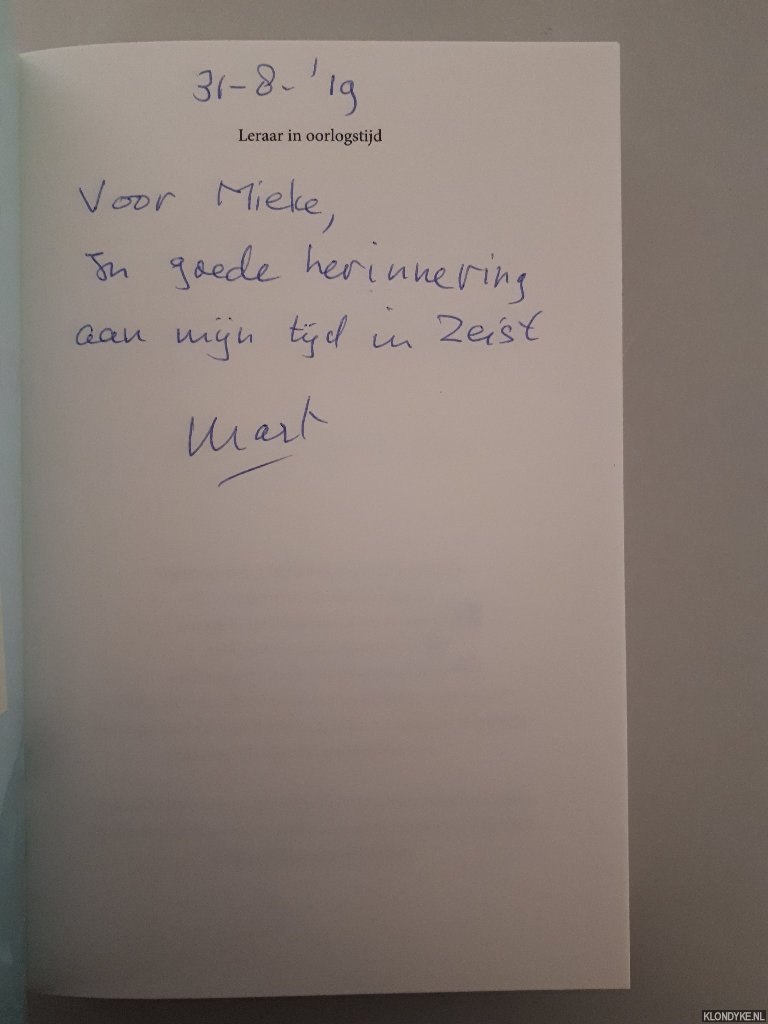 31-8-'19
Leraar in oorlogstijd
Voor Mieke,
In goede herinnering
aan mijn tijd in Zeist
Mart
KLONDYKE.NL